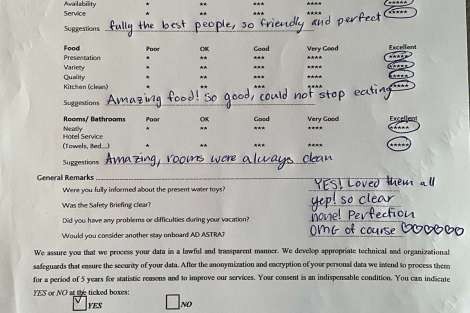 Availability * ** *** **** *****
Service * ** *** **** *****
Suggestions fully the best people, so friendly and perfect
Food Poor OK Good Very Good Excellent
Presentation * ** *** **** *****
Variety * ** *** **** *****
Quality * ** *** **** *****
Kitchen (clean) * ** *** **** *****
Suggestions Amazing food! So good, could not stop eating
Rooms/ Bathrooms Poor OK Good Very Good Excellent
Neatly * ** *** **** *****
Hotel Service
(Towels, Bed...) * ** *** **** *****
Suggestions Amazing, rooms were always clean
General Remarks
Were you fully informed about the present water toys? YES! Loved them all
Was the Safety Briefing clear? yep! so clear
Did you have any problems or difficulties during your vacation? none! Perfection
Would you consider another stay onboard AD ASTRA? OMG of course ♡♡♡♡♡♡
We assure you that we process your data in a lawful and transparent manner. We develop appropriate technical and organizational
safeguards that ensure the security of your data. After the anonymization and encryption of your personal data we intend to process them
for a period of 5 years for statistic reasons and to improve our services. Your consent is an indispensable condition. You can indicate
YES or NO at the ticked boxes:
YES NO